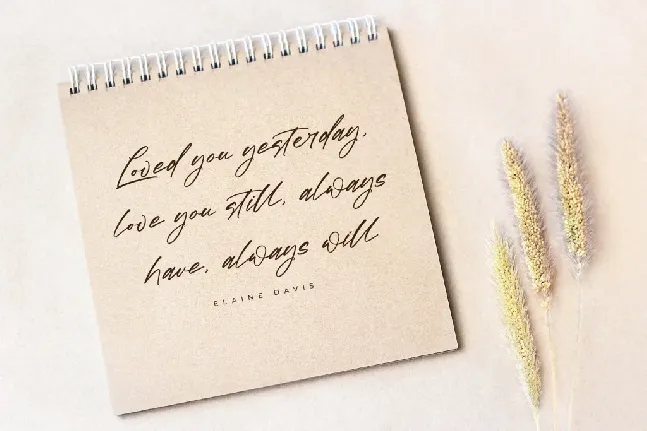 Loved you yesterday,
love you still, always
have, always will
ELAINE DAVIS